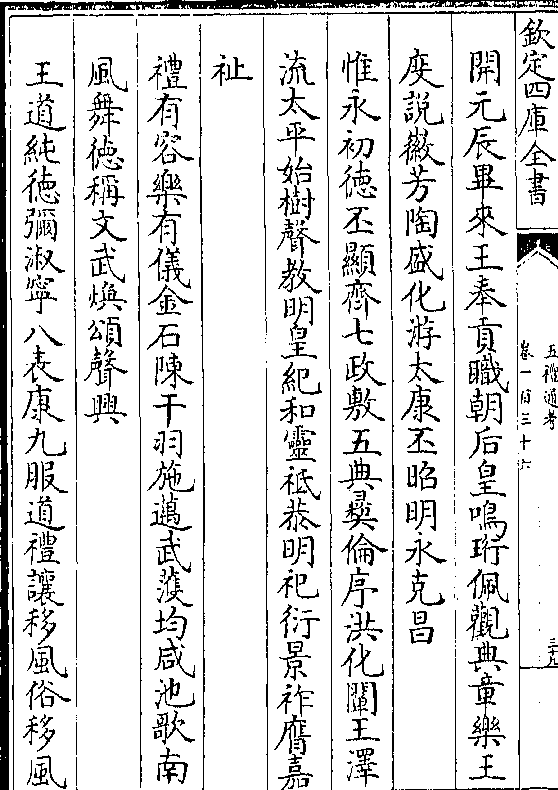 欽定四庫全書
五禮通考
卷一百三十六
三十九
開元辰畢來王奉貢職朝后皇鳴珩佩觀典章樂王
度説徽芳陶盛化游太康丕昭明永克昌
惟永初德丕顯齊七政敷五典彛倫序洪化闡王澤
流太平始樹聲教明皇紀和靈祗恭明祀衍景祚膺嘉
祉
禮有容樂有儀金石陳干羽施邁武濩均咸池歌南
風舞徳稱文武煥頌聲興
王道純徳彌淑寧八表康九服道禮讓移風俗移風